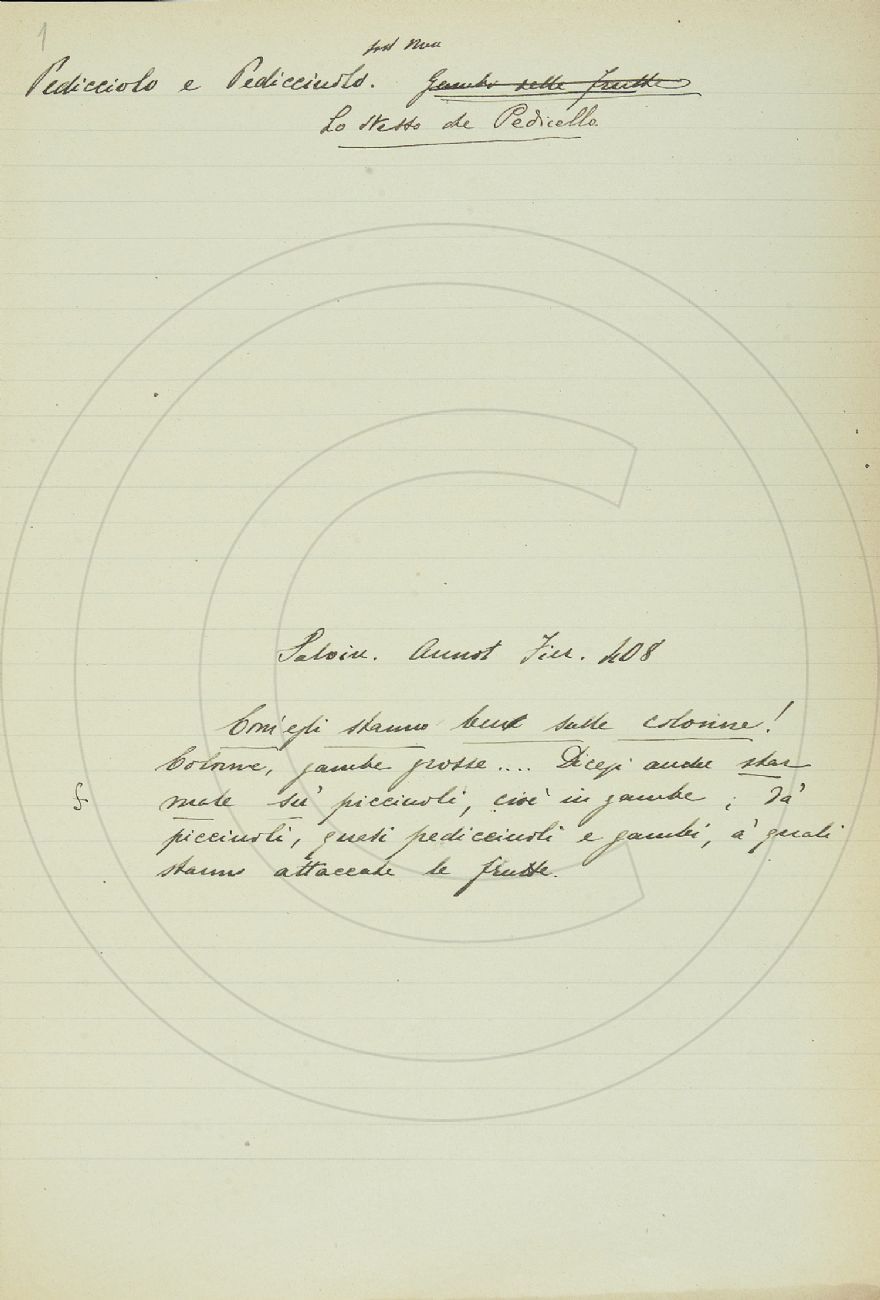 1
Sost Mas
Pedicciolo e Pedicciuolo. Gambo delle frutte
Lo stesso che Pedicello
Salvin. Annot Fier. 408
Com' egli stanno bene sulle colonne!
Colonne, gambe grosse.... Dicesi anche star
male su' picciuoli, cioè in gambe; da'
picciuoli, quasi pedicciuoli e gambi, a' quali
stanno attaccate le frutte.